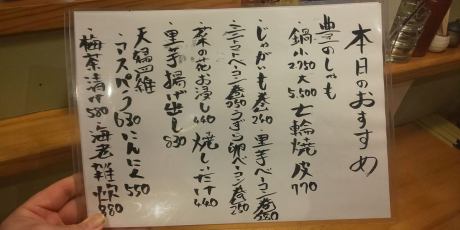 本日のおすすめ
豊のしゃも
鍋小2.750 大5.500 七輪焼 皮770
・じゃがいも巻260・里芋ベーコン巻280
・ミニトマトベーコン巻250うずら卵ベーコン巻250
菜の花お浸し440 焼しいたけ440
・里芋揚げ出し830
天婦羅
・アスパラ630にんにく550
・梅茶漬け580・海老雑炊880